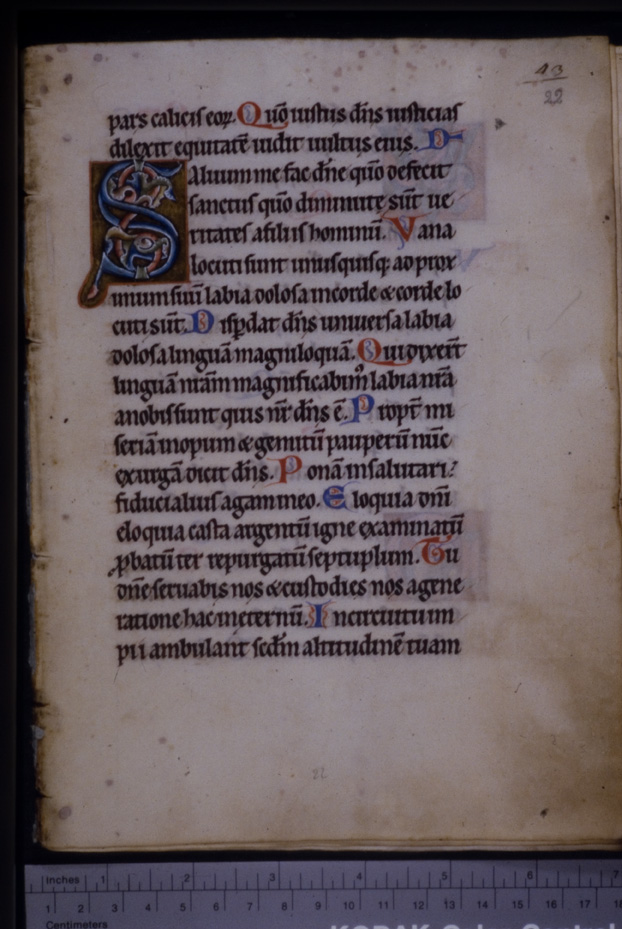 43
22
pars calicis eoꝝ. Quō iustus dn̄s iusticias
dilexit equitatē uidit uultus eius. D
Aluum me fac dn̄e quō defecit
sanctus quō diminute sūt ue
ritates a filiis hominū. Vana
locuti sunt unusquisq; ad prox
imum suū labia dolosa in corde & corde lo
cuti sūt. Disp̄dat dn̄s uniuersa labia
dolosa linguā magniloquā. Qui dixer̄t
linguā nr̄am magnificabimꝰ labia nr̄a
a nobis sunt quis nr̄ dn̄s ē. Propt̄ mi
seriā inopum & gemitū pauperū nūc
exurgā dicit dn̄s. Ponā in salutari:
fiducialius agam in eo. Eloquia dn̄i
eloquia casta argentū igne examinatū
ꝓbatū ter̄ repurgatū septuplum. Tu
dn̄e seruabis nos & custodies nos a gene
ratione hac in eternū. In circuitu im
pii ambulant sed̄m altitudinē tuam
22
Inches 1 2 3 4 5 6 7
1 2 3 4 5 6 7 8 9 10 11 12 13 14 15 16 17 18
Centimeters